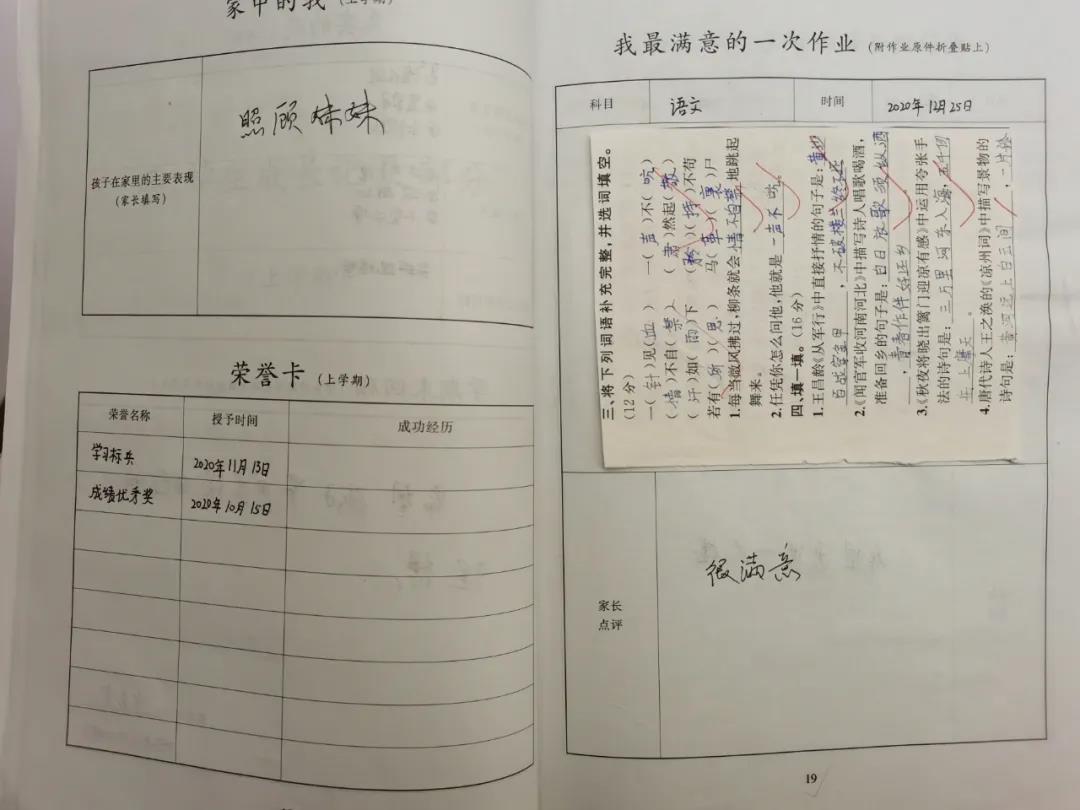 家中的我(上学期)
孩子在家里的主要表现
(家长填写)
照顾妹妹
荣誉卡(上学期)
荣誉名称 授予时间 成功经历
学习标兵 2020年11月13日
成绩优秀奖 2020年10月15日
我最满意的一次作业(附作业原件折叠贴上)
科目 语文 时间 2020年12月25日
三、将下列词语补充完整,并选词填空。
(12分)
一(针)见(血) 一(声)不(吭)
(情)不自(禁) (肃)然起(敬)
(汗)如(雨)下 (矜)(持)不苟
若有(所)(思) 马(革)(裹)尸
1.每当微风拂过,柳条就会情不自禁地跳起
舞来。
2.任凭你怎么问他,他就是一声不吭。
四、填一填。(16分)
1.王昌龄《从军行》中直接抒情的句子是:黄沙
百战穿金甲,不破楼兰终不还
2.《闻官军收河南河北》中描写诗人唱歌喝酒,
准备回乡的句子是:白日放歌须纵酒
,青春作伴好还乡
3.《秋夜将晓出篱门迎凉有感》中运用夸张手
法的诗句是:三万里河东入海,五千仞
岳上摩天。
4.唐代诗人王之涣的《凉州词》中描写景物的
诗句是:黄河远上白云间,一片
家长
点评
很满意
19